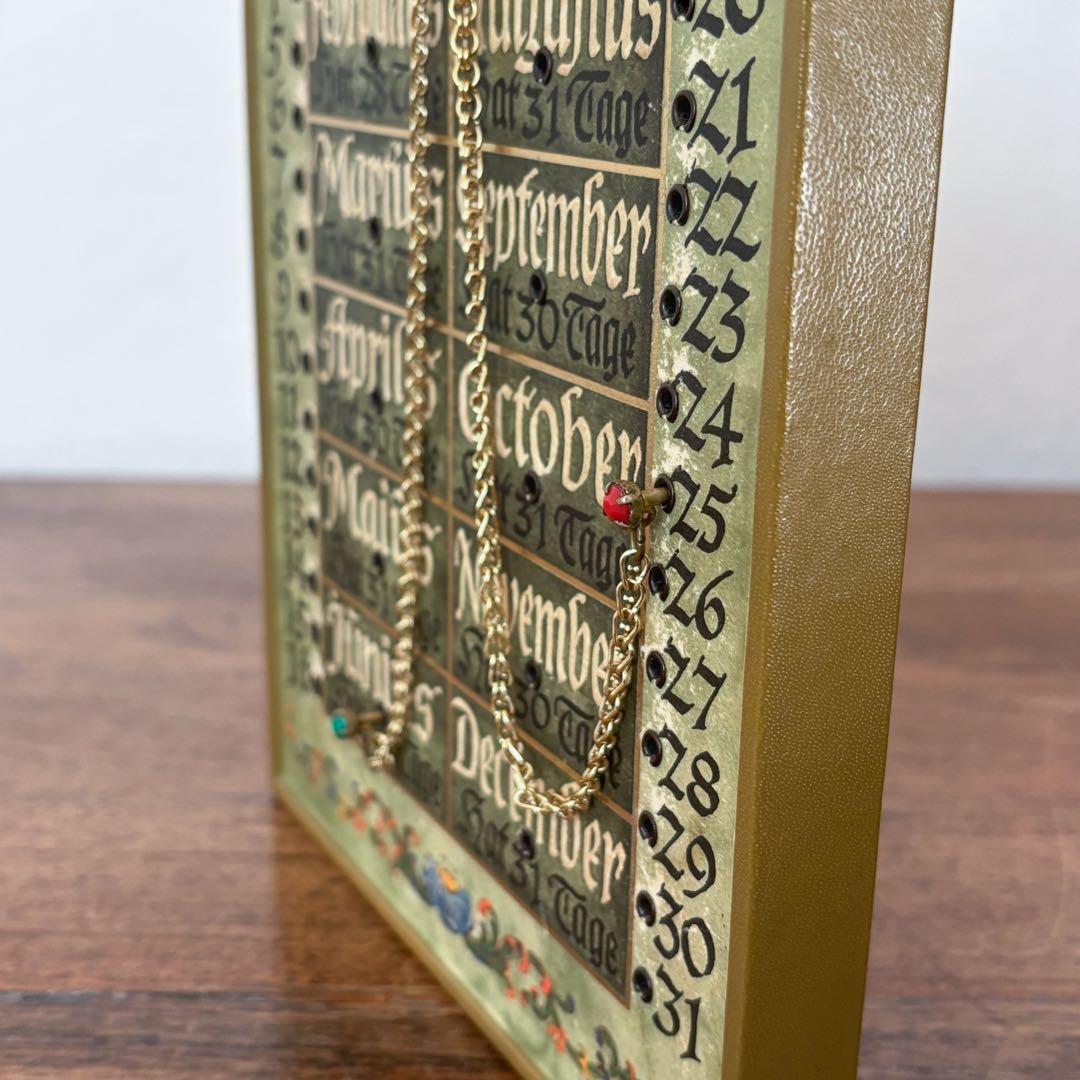 5
6
7
8
9
10
11
12
hat 28 Tage
Martius
hat 31 Tage
April
hat 30
Maius
31
Junius
Tage
Augustus
hat 31 Tage
September
hat 30 Tage
October
hat 31 Tage
November
hat 30 Tage
December
hat 31 Tage
20
21
22
23
24
25
26
27
28
29
30
31